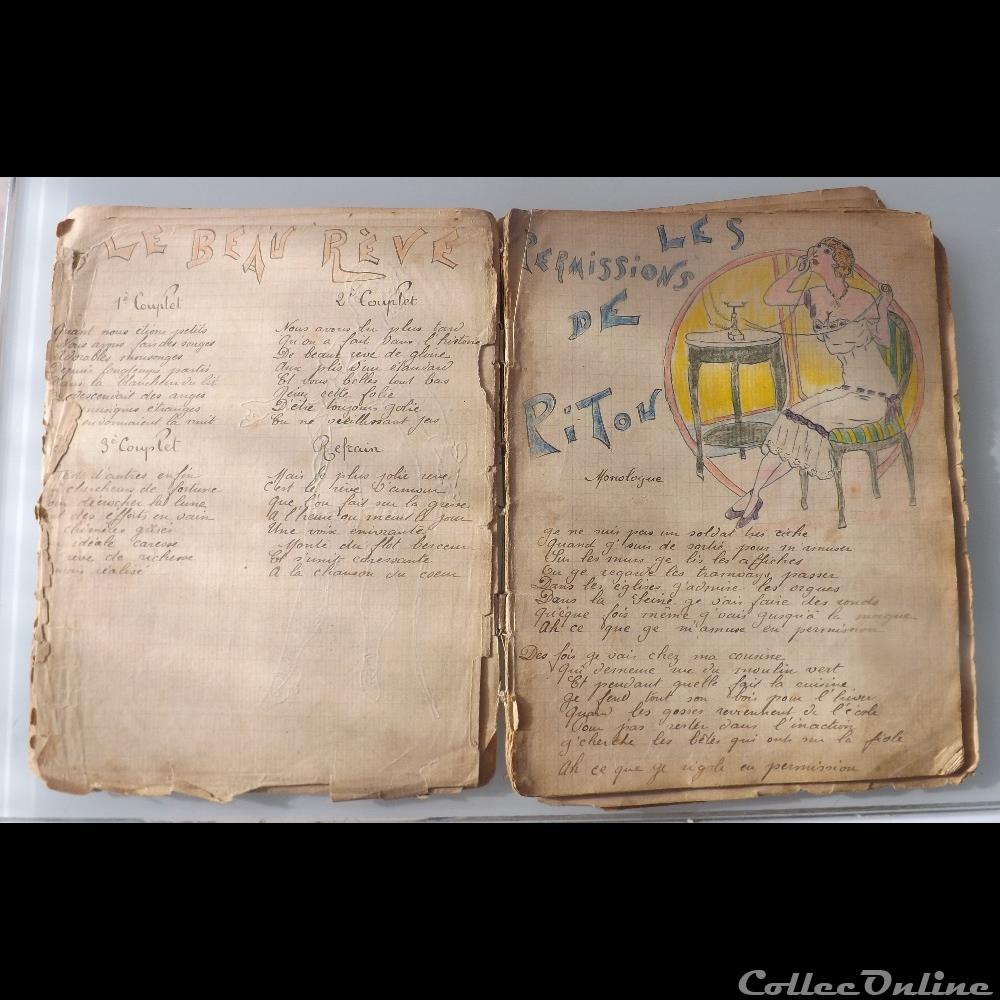 LE BEAU RÊVE
1e Couplet
Quant nous étions petits
Nous avons fais des songes
Adorables mensonges
Depuis longtemps partis
Dans la blancheur du lit
descendait des anges
musiques étranges
la nuit
2e Couplet
Nous avons lu plus tard
Qu'on a fait dans l'histoire
De beaux reve de gloire
Aux plis d'un étandard
Et vous belles tout bas
cette folie
D'être toujours jolie
En ne vieillissant pas
3e Couplet
d'autres enfin
chercheurs de fortune
décrocher la lune
des efforts en vain
chimère grise
idéale caresse
reve de richesse
mais réalisé
Refrain
Mais le plus jolie reve
C'est le rêve d'amour
Que l'on fait sur la greve
A l'heure ou meurt le jour
Une voix enivrante
Monte du flot berceur
Et s'unit caressante
A la chanson du coeur
LES
PERMISSIONS
DE
PiTOU
Monologue
Je ne suis pas un soldat tres riche
Quand j'suis de sortie pour m'amuser
Sur les murs je lis les affiches
Ou je regarde les tramways passer
Dans les églises j'admire les orgues
Dans la Seine je vais faire des ronds
Quéque fois même j'vais jusqu'à la morgue
Ah ce que je m'amuse en permission
Des fois je vais chez ma cousine
Qui demeure rue du moulin vert
Et pendant quelle fait la cuisine
Je fend tout son bois pour l'hiver
Quand les gosses reviennent de l'école
Pour pas rester dans l'inaction
J'cherche les bêtes qui ont sur la fiole
Ah ce que je rigole en permission
CollecOnline